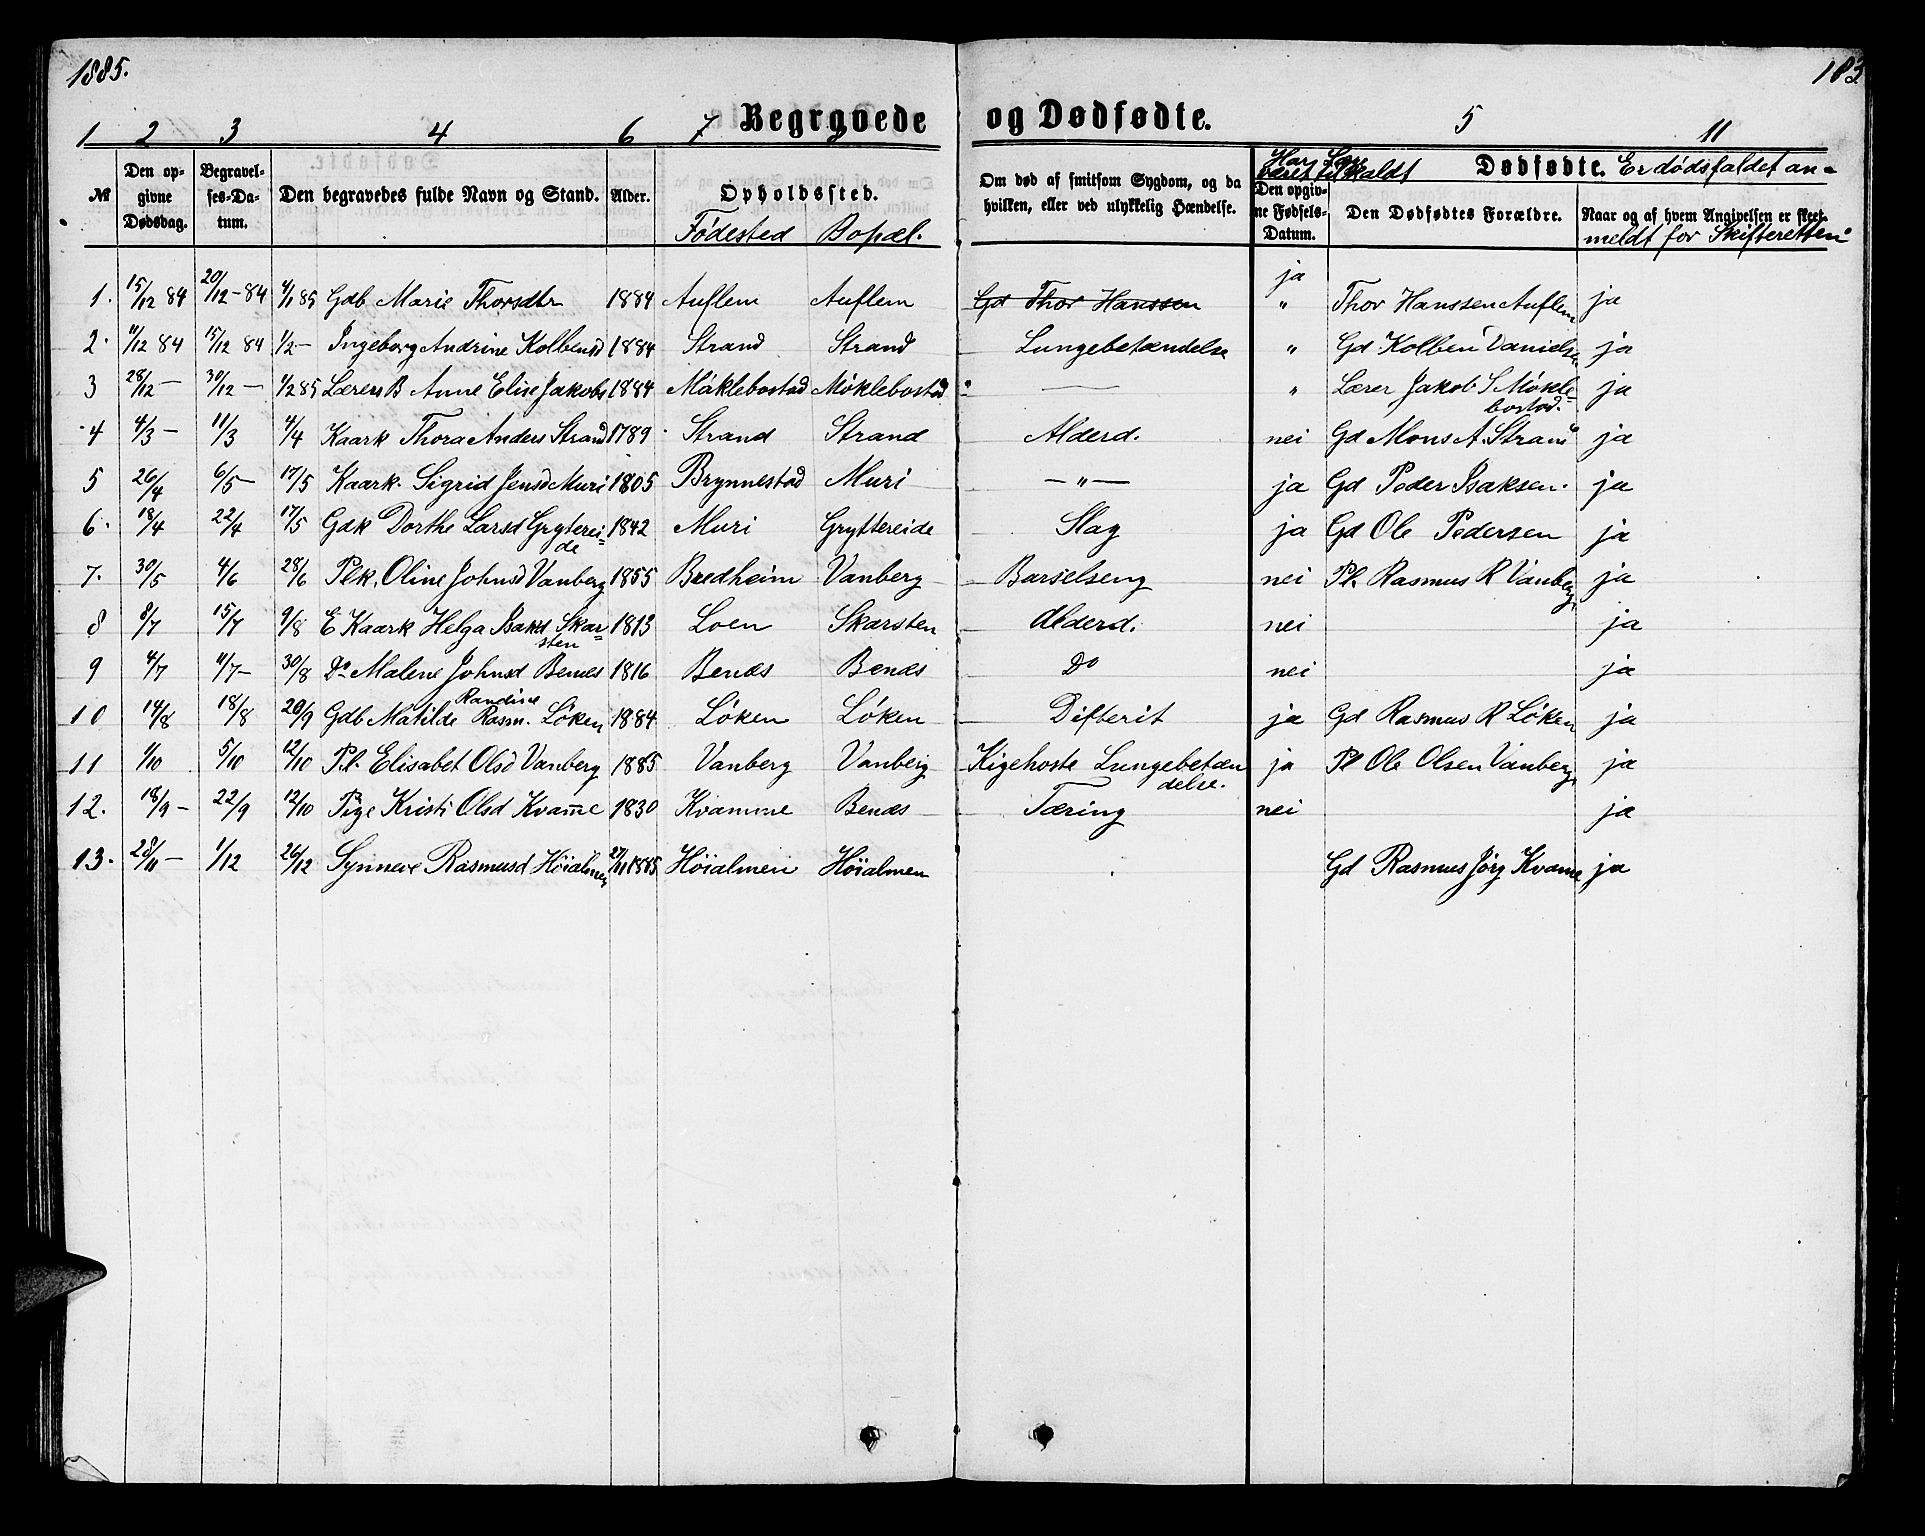 1885.
183
1 2 3 4 6 7 8 5 11
Begravede og Dødfødte.
№ Den opgivne Dødsdag. Begravelses-Datum. Den begravedes fulde Navn og Stand. Alder. Opholdssted. Om død af smitsom Sygdom, og da hvilken, eller ved ulykkelig Hændelse. Den opgivne Fødsels-Datum. Dødfødte. Den Dødfødtes Forældre. Naar og af hvem Angivelsen er skeet.
Fødested Bopæl. Har Læge været tilkaldt Er dødsfaldet anmeldt for Skifteretten
1. 15/12 84 20/12-84 4/1 85 Gdb Marie Thorsdtr 1884 Auflem Auflem Gd Thor Hanssen ja " Thor Hanssen Auflem ja
2. 11/12 84 15/12 84 1/2- Ingeborg Andrine Kolbensd 1884 Strand Strand Lungebetændelse " Gd Kolben Danielsen ja
3 28/12 - 30/12 - 1/2 85 Lærers B Anne Elise Jakobs 1884 Møklebostad Møklebostad " — " Lærer Jakob S Møklebostad. ja
4 4/3 - 11/3 4/4 Kaark Thora Anders Strand 1789 Strand Strand Alderd. nei Gd Mons A. Strand ja
5 26/4 6/5 - 17/5 Kaark. Sigrid Jensd Muri 1805 Brynnestad Muri — " — ja Gd Peder Isaksen. ja
6. 18/4 22/4 17/5 Gdk Dorthe Larsd Gryttereide 1842 Muri Gryttereide Slag ja Gd Ole Pedersen ja
7. 30/5 4/6 28/6 Plk. Oline Johnsd Vanberg 1855 Bredheim Vanberg Barselseng nei Pl. Rasmus R Vanberg ja
8 8/7 15/7 9/8 E Kaark Helga Isaksd Skarsten 1813 Loen Skarsten Alderd. nei ja
9 4/7 11/7 - 30/8 Do Malene Johnsd Benæs 1816 Benæs Benæs Do nei ja
10 14/8 18/8 20/9 Gdb Matilde Randine Rasm. Løken 1884 Løken Løken Difterit ja Gd Rasmus R Løken ja
11 1/10 5/10 12/10 Pl. Elisabet Olsd Vanberg 1885 Vanberg Vanberg Kigehoste Lungebetændelse. ja Pl Ole Olsen Vanberg ja
12. 18/9 - 22/9 12/10 Pige Kristi Olsd Kvam̅e 1830 Kvamme Benæs Tæring nei ja
13. 28/11 - 1/12 26/12 Synneve Rasmusd Høialmen 27/11 1885 Høialmen Høialmen Gd Rasmus Jørg Kvam̅e ja